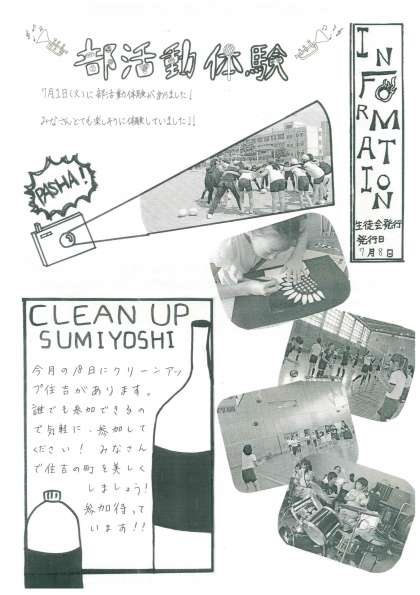 部活動体験
7月1日(火)に部活動体験がありました!
みなさんとても楽しそうに体験していました!!
INFORMATION
生徒会発行
発行日
7月8日
PASHA!
CLEAN UP
SUMIYOSHI
今月の18日にクリーンアッ
プ住吉があります。
誰でも参加できるの
で気軽に、参加して
ください! みなさん
で住吉の町を美しく
しましょう!
参加待って
います!!